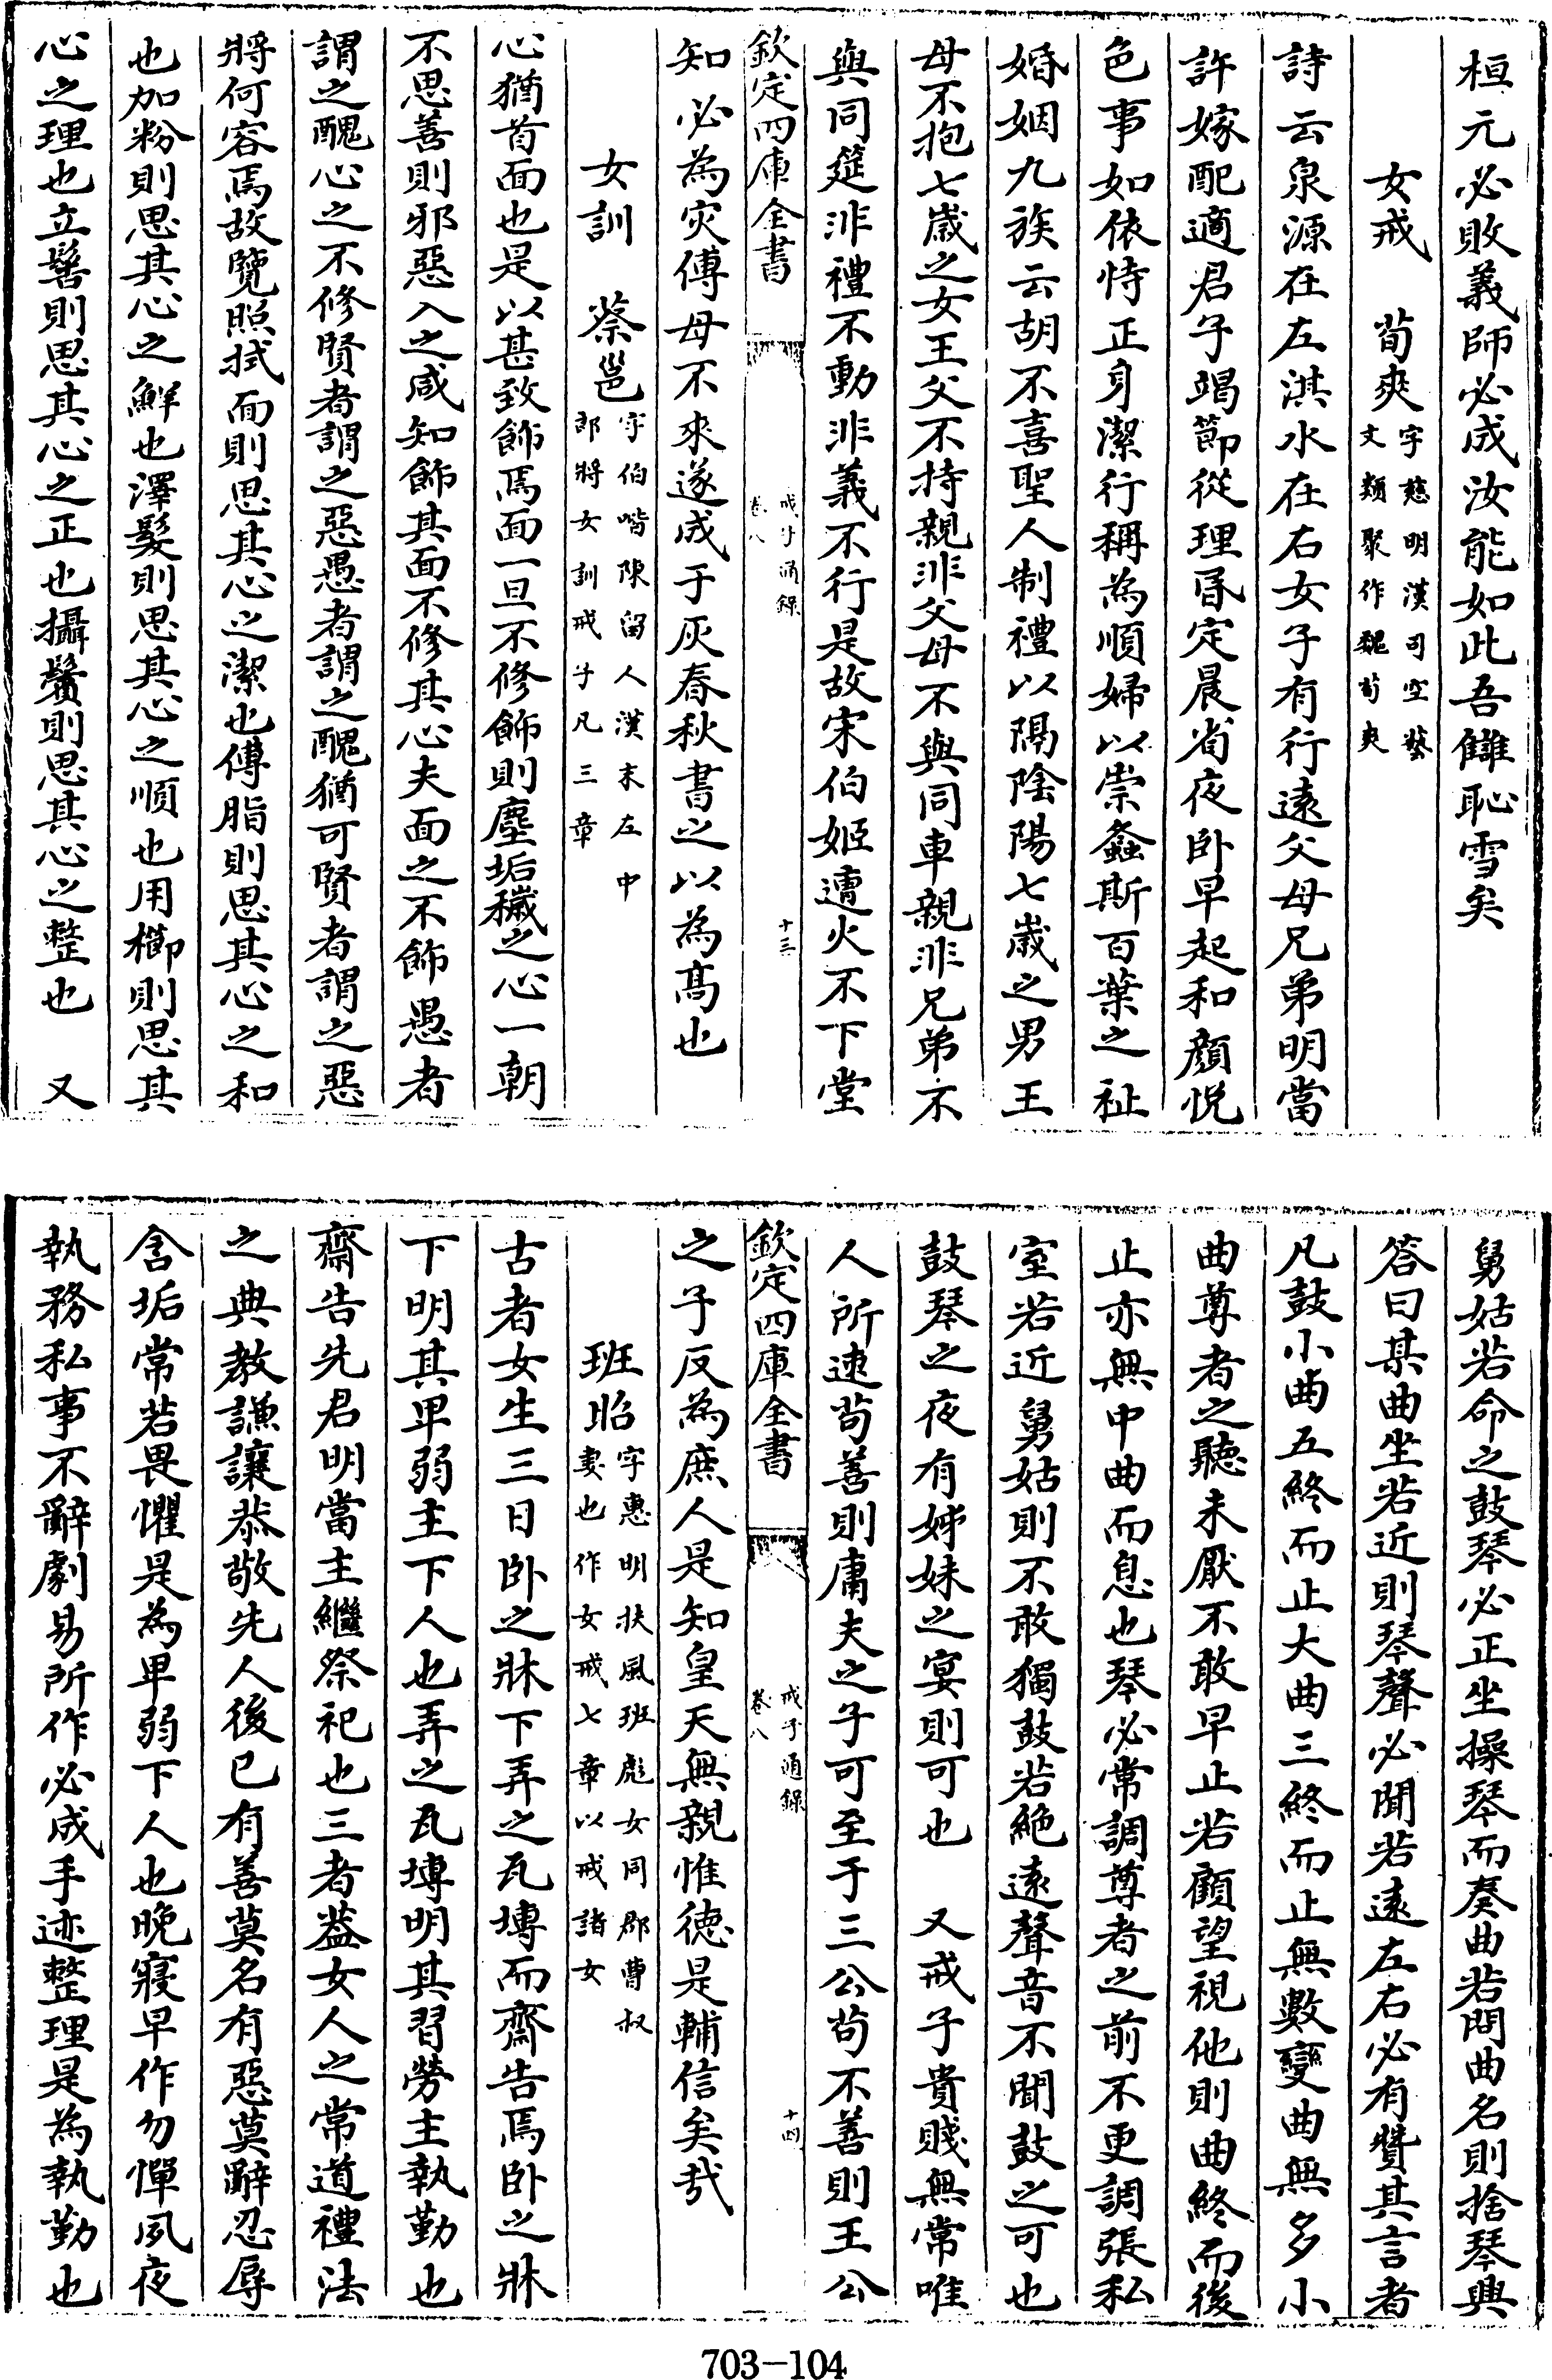 桓元必敗義師必成汝能如此吾讎恥雪矣
女戒　荀爽字慈明漢司空藝
文類聚作魏荀爽
詩云泉源在左淇水在右女子有行遠父母兄弟明當
許嫁配適君子竭節從理昏定晨省夜卧早起和顔悦
色事如依恃正身潔行稱為順婦以崇螽斯百葉之祉
婚姻九族云胡不喜聖人制禮以隔陰陽七歲之男王
母不抱七歲之女王父不持親非父母不與同車親非兄弟不
與同筵非禮不動非義不行是故宋伯姬遭火不下堂
欽定四庫全書　戒子通錄
卷八　十三
知必為灾傅母不來遂成于灰春秋書之以為髙也
女訓　蔡邕字伯喈陳留人漢末左中
郎將女訓戒子凡三章
心猶首面也是以甚致飾焉面一旦不修飾則塵垢穢之心一朝
不思善則邪惡入之咸知飾其面不修其心夫面之不飾愚者
謂之醜心之不修賢者謂之惡愚者謂之醜猶可賢者謂之惡
將何容焉故覽照拭面則思其心之潔也傅脂則思其心之和
也加粉則思其心之鮮也澤髮則思其心之順也用櫛則思其
心之理也立髻則思其心之正也攝鬢則思其心之整也　又
舅姑若命之鼓琴必正坐操琴而奏曲若問曲名則捨琴興
答曰某曲坐若近則琴聲必聞若遠左右必有贊其言者
凡鼓小曲五終而止大曲三終而止無數變曲無多小
曲尊者之聽未厭不敢早止若顧望視他則曲終而後
止亦無中曲而息也琴必常調尊者之前不更調張私
室若近舅姑則不敢獨鼓若絶遠聲音不聞鼓之可也
鼓琴之夜有姊妹之宴則可也　又戒子貴賤無常唯
人所速苟善則庸夫之子可至于三公苟不善則王公
欽定四庫全書　戒子通錄
卷八　十四
之子反為庶人是知皇天無親惟德是輔信矣哉
班昭字惠明扶風班彪女同郡曹叔
妻也作女戒七章以戒諸女
古者女生三日卧之牀下弄之瓦塼而齋告焉卧之牀
下明其卑弱主下人也弄之瓦塼明其習勞主執勤也
齋告先君明當主繼祭祀也三者葢女人之常道禮法
之典教謙讓恭敬先人後已有善莫名有惡莫辭忍辱
含垢常若畏懼是為卑弱下人也晚寢早作勿憚夙夜
執務私事不辭劇易所作必成手迹整理是為執勤也
703-104